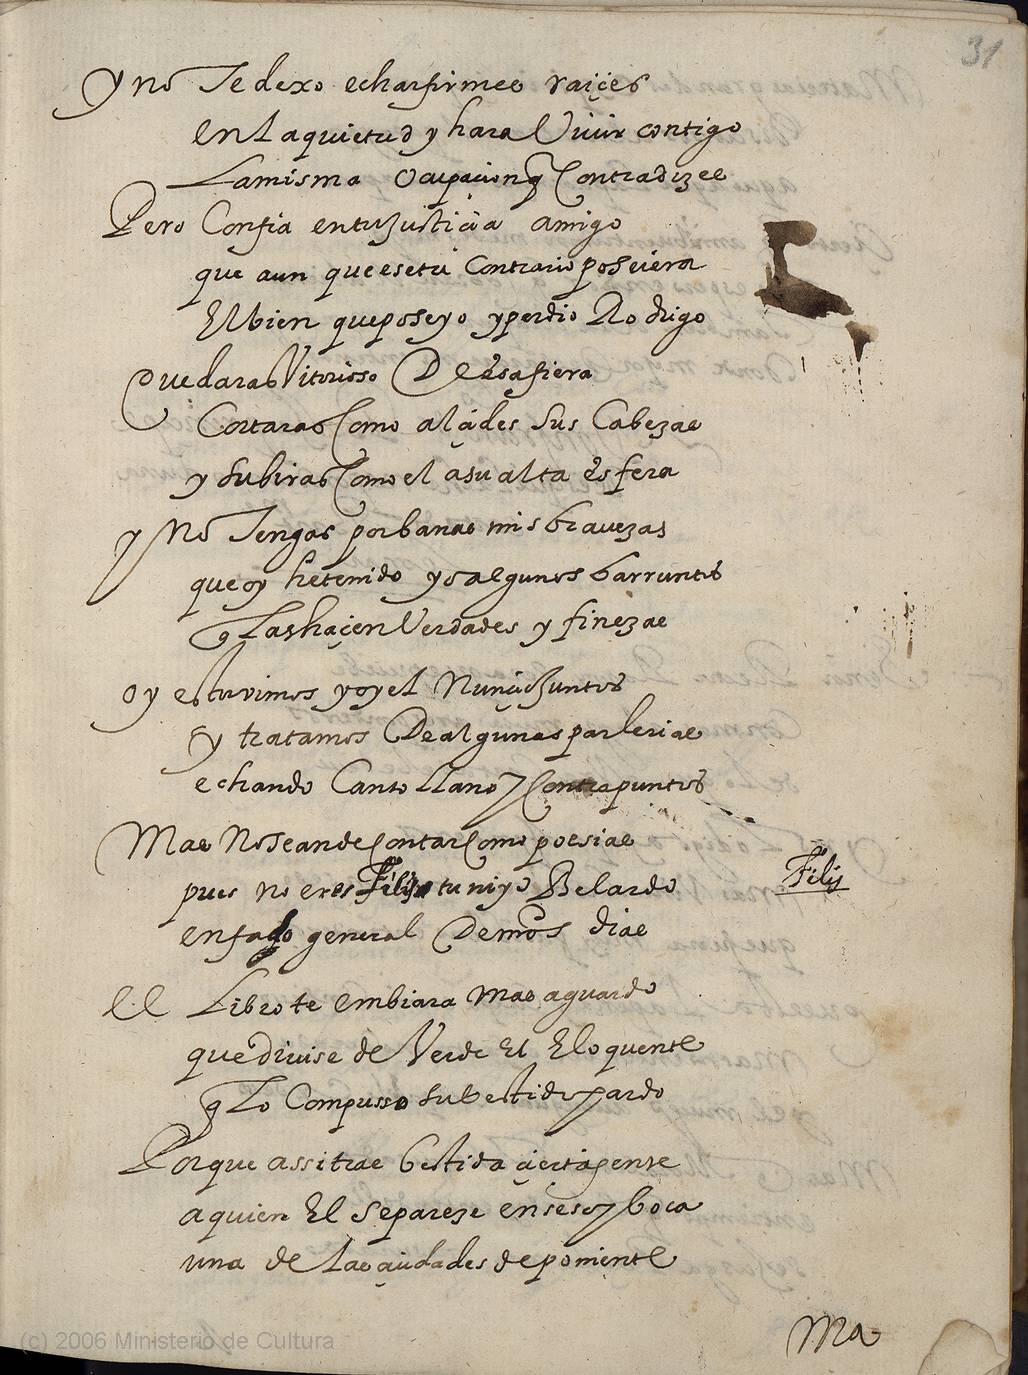 31
y no Te dexo echar firmes raiçes
en La quietud y hara Viuir contigo
La misma ocupacion q̃ Contradizes
Pero Confia en tu Justiçia amigo
que aun que ese tu Contrario poseiera
El bien que poseyo y perdio Rodrigo
quedaras Vitorioso De Esa fiera
Cortaras Como alçides sus Cabezas
y subiras Como el a su alta Esfera
y No Tengas por banas mis brauezas
que oy he tenido yo algunos barruntos
q̃ Las haçen Verdades y finezas
oy estuvimos yo y el Nunçio Juntos
y tratamos De algunas parlerias
echando Canto LLano y Contrapuntos
Mas No se an de Contar Como poesias
pues no eres Filis tu ni yo Belardo
Filis
enfado general Demos dias
El Libro te embiara mas aguardo
que diuise de Verde El Eloquente
q̃ Lo Compusso su bestido pardo
Porque assi trae bestida çierta gente
a quien El se pareze en seso y boca
una de Las çiudades de poniente
Ma
(c) 2006 Ministerio de Cultura